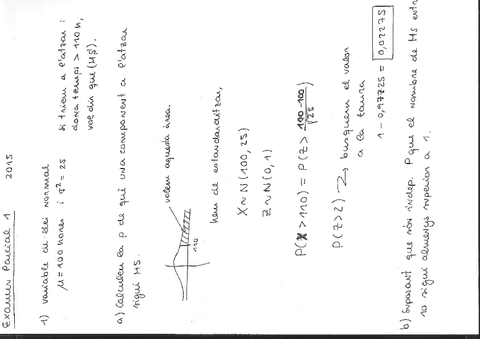 Examen Parcial 1 2015
1) variable de llei normal
μ = 100 hores i σ² = 25
si triem a l'atzar i
dona temps > 110h,
vol dir que (MS).
a) Calculeu la p de què una component a l'atzar
sigui MS.
volem aquesta àrea.
110
hem de estandarditzar,
X ~ N(100, 25)
Z ~ N(0, 1)
P(X > 110) = P(Z > 110-100 / √25)
P(Z > 2) → busquem el valor
a la taula
1 - 0,97725 = 0,02275
b) Suposant que són indep. P que el nombre de MS entre
10 sigui almenys superior a 1.